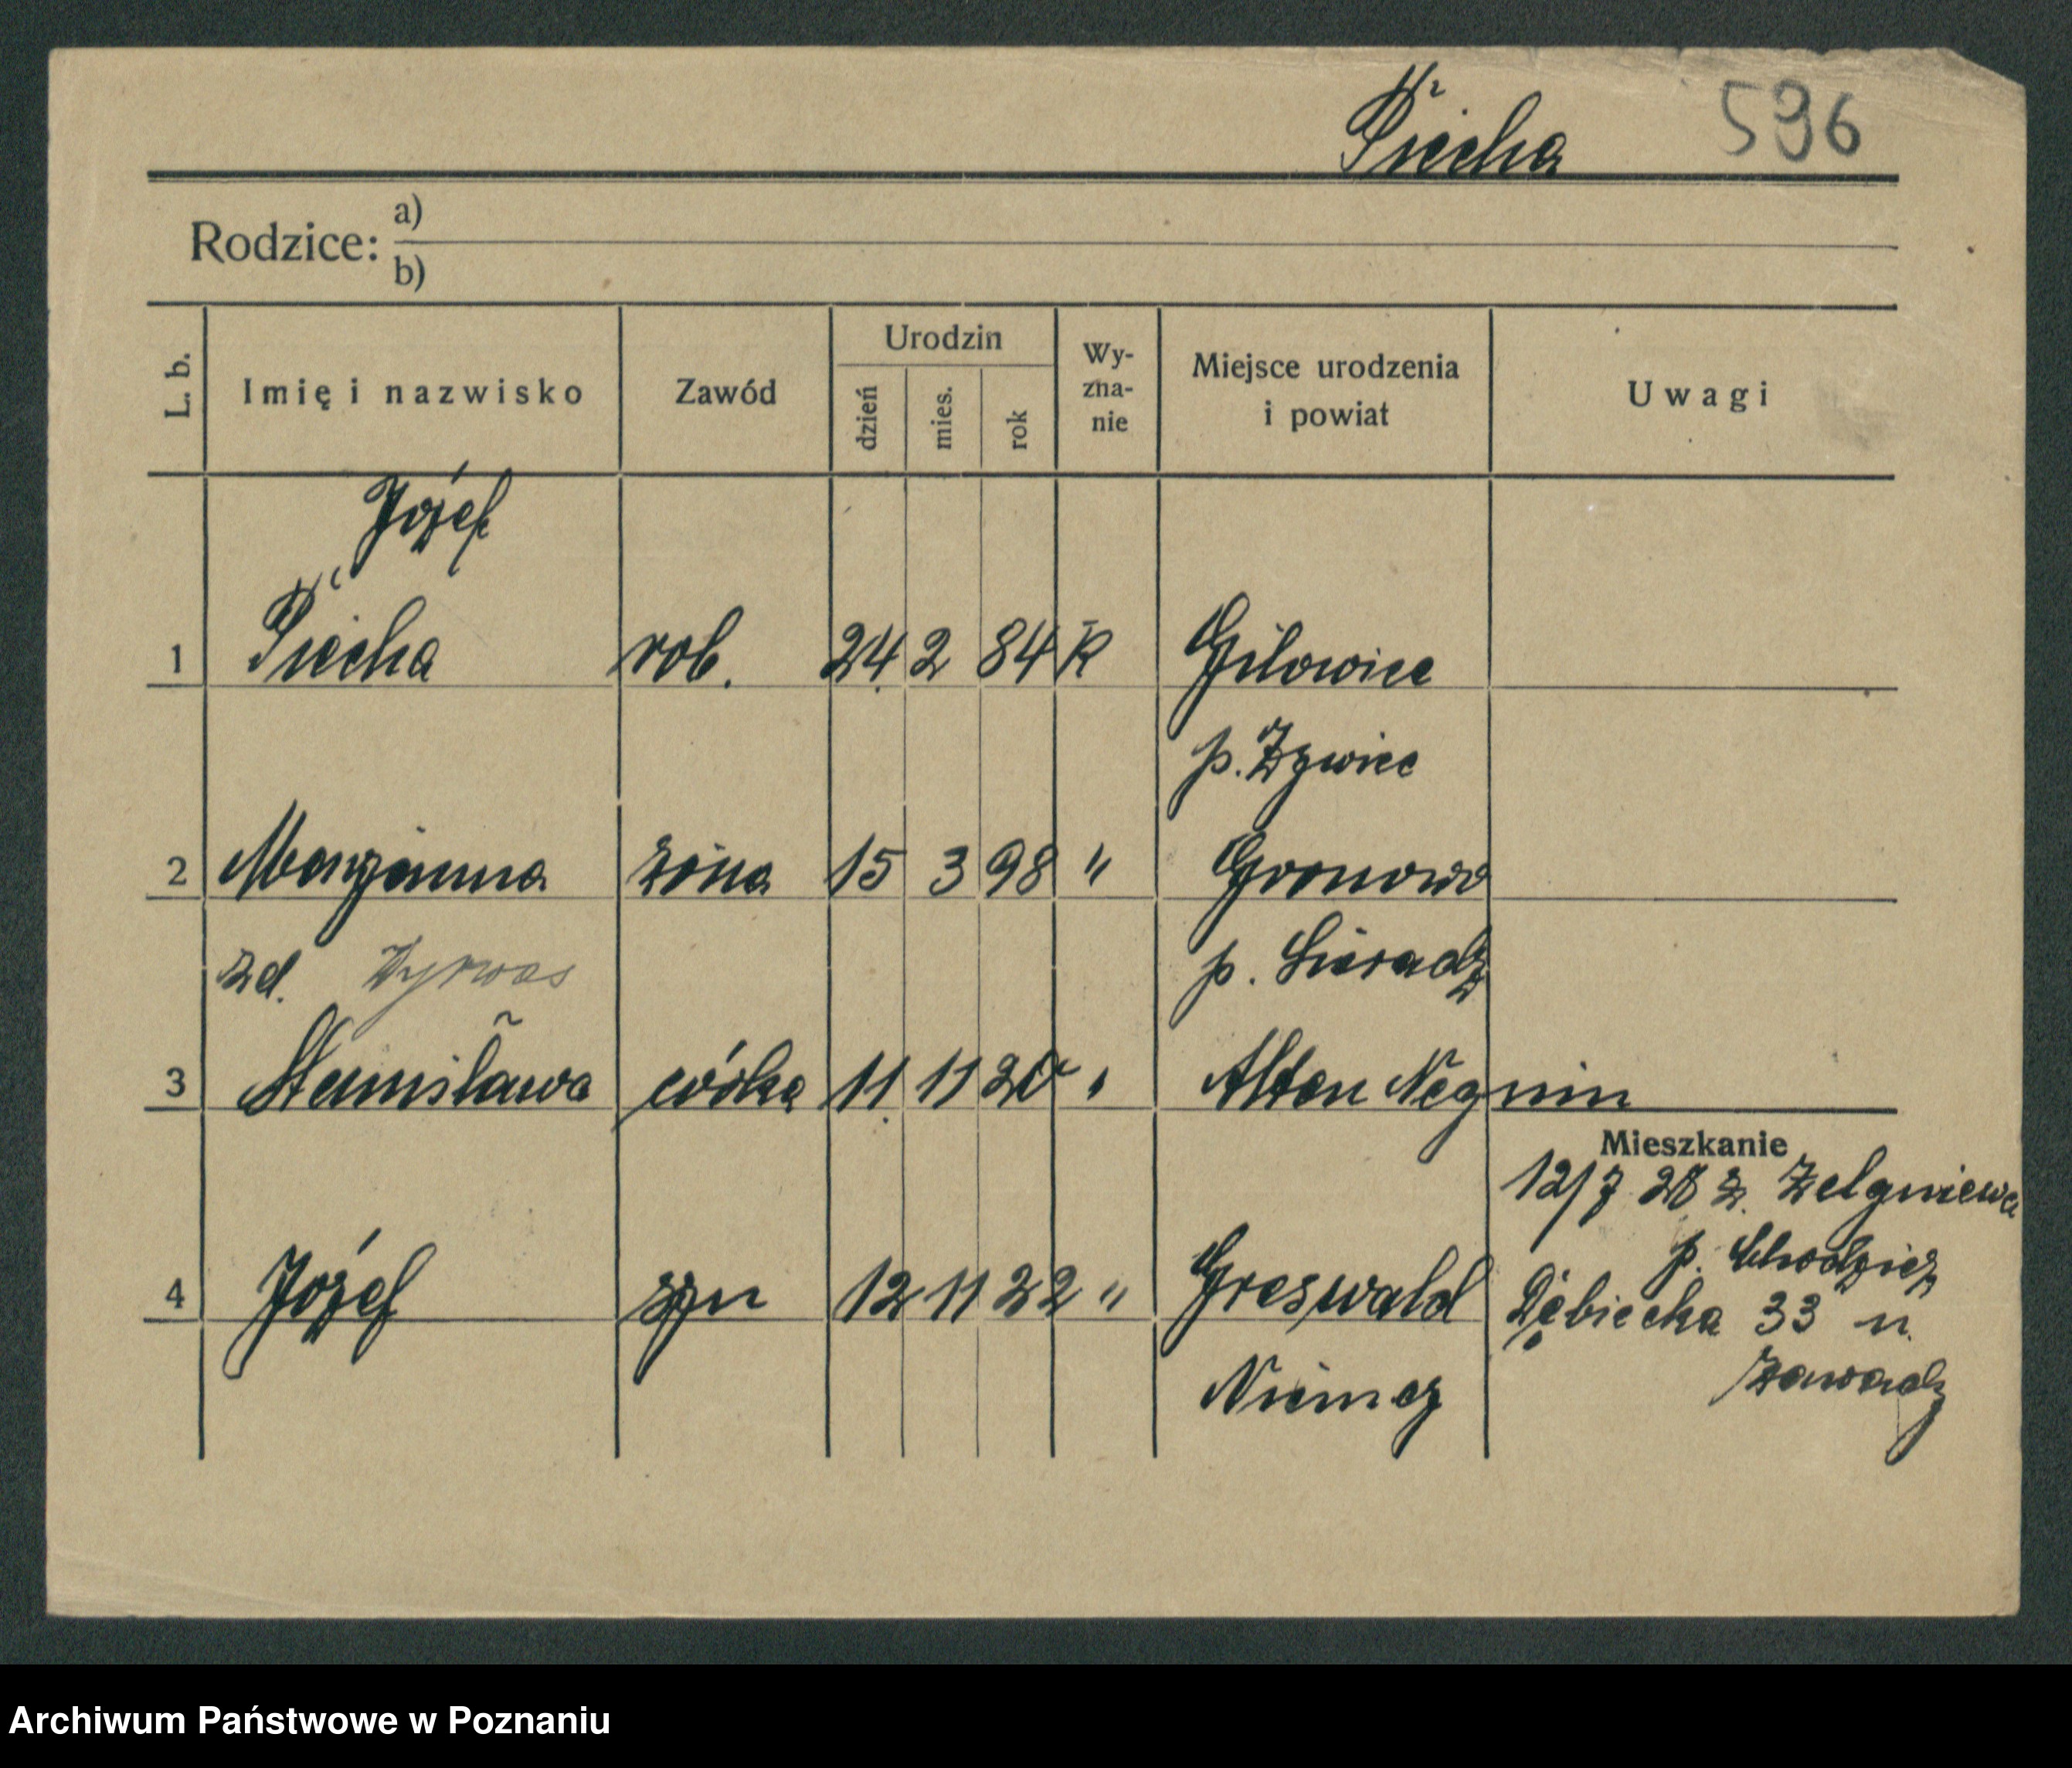 Piecha 596
Rodzice: a)
b)
L. b. Imię i nazwisko Zawód Urodzin dzień mies. rok Wy-zna-nie Miejsce urodzenia i powiat Uwagi
Józef
1 Piecha rob. 24 2 84 R Gilowice
p. Żywiec
2 Maryanna żona 15 3 98 " Gronowo
zd. p. Sieradz
3 Stanisława córka 11 11 20 " Alten Negnin
Mieszkanie
12/7 28 z. Zelgniewa
p. Chodzież
4 Józef syn 12 11 22 " Greswald Dębiecka 33 u.
Niemcy Zawady
Archiwum Państwowe w Poznaniu